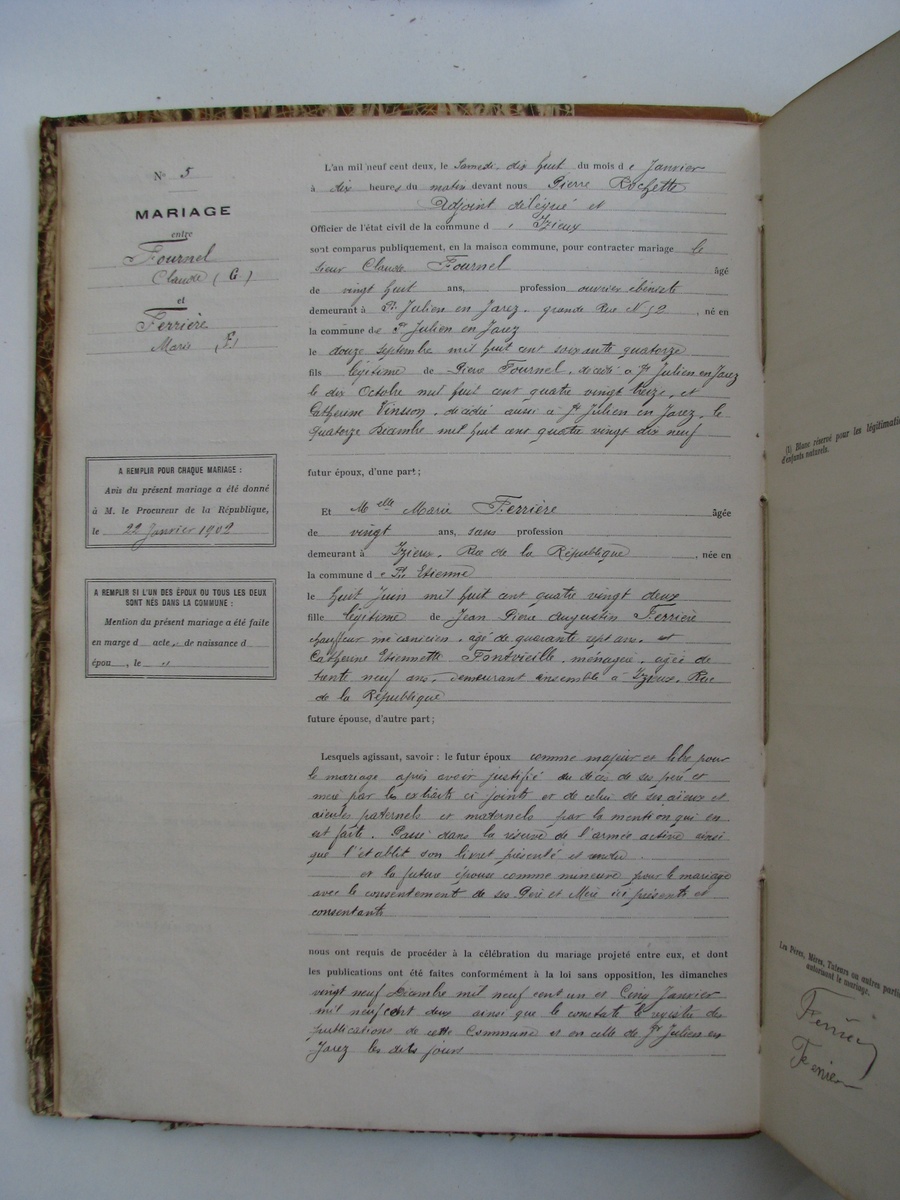 N° 5
MARIAGE
entre
Fournel
Claude (G)
et
Ferrière
Marie (F)
A REMPLIR POUR CHAQUE MARIAGE :
Avis du présent mariage a été donné
à M. le Procureur de la République,
le 22 Janvier 1902
A REMPLIR SI L'UN DES ÉPOUX OU TOUS LES DEUX
SONT NÉS DANS LA COMMUNE :
Mention du présent mariage a été faite
en marge d acte de naissance d
épou , le "
L'an mil neuf cent deux, le Samedi dix huit du mois de Janvier
à dix heures du matin devant nous Pierre Rochette
Adjoint délégué et
Officier de l'état civil de la commune d' Izieux
sont comparus publiquement, en la maison commune, pour contracter mariage le
sieur Claude Fournel âgé
de vingt huit ans, profession ouvrier ébéniste
demeurant à St Julien en Jarez, grande Rue N° 52, né en
la commune de St Julien en Jarez
le douze septembre mil huit cent soixante quatorze
fils légitime de Pierre Fournel, décédé à St Julien en Jarez
le dix Octobre mil huit cent quatre vingt treize, et
Catherine Vinsson, décédée aussi à St Julien en Jarez, le
quatorze Décembre mil huit cent quatre vingt dix neuf
futur époux, d'une part ;
Et Melle Marie Ferrière âgée
de vingt ans, sans profession
demeurant à Izieux, Rue de la République, née en
la commune de St Etienne
le huit Juin mil huit cent quatre vingt deux
fille légitime de Jean Pierre Augustin Ferrière
chauffeur mécanicien, agé de quarante sept ans, et
Catherine Etiennette Fontvieille, ménagère, agée de
trente neuf ans, demeurant ensemble à Izieux, Rue
de la République
future épouse, d'autre part ;
Lesquels agissant, savoir : le futur époux comme majeur et libre pour
le mariage après avoir justifié du décès de ses père et
mère par les extraits ci joints et de celui de ses aïeux et
aïeules paternels et maternels par la mention qui en
est faite. Passé dans la réserve de l'armée active ainsi
que l'établit son livret présenté et rendu
et la future épouse comme mineure pour le mariage
avec le consentement de ses Père et Mère ici présents et
consentants
nous ont requis de procéder à la célébration du mariage projeté entre eux, et dont
les publications ont été faites conformément à la loi sans opposition, les dimanches
vingt neuf Décembre mil neuf cent un et Cinq Janvier
mil neuf cent deux ainsi que le constate le registre des
publications de cette Commune et en celle de St Julien en
Jarez les dits jours
(1) Blanc réservé pour les légitimati
d'enfants naturels.
Les Pères, Mères, Tuteurs ou autres partie
autorisant le mariage.